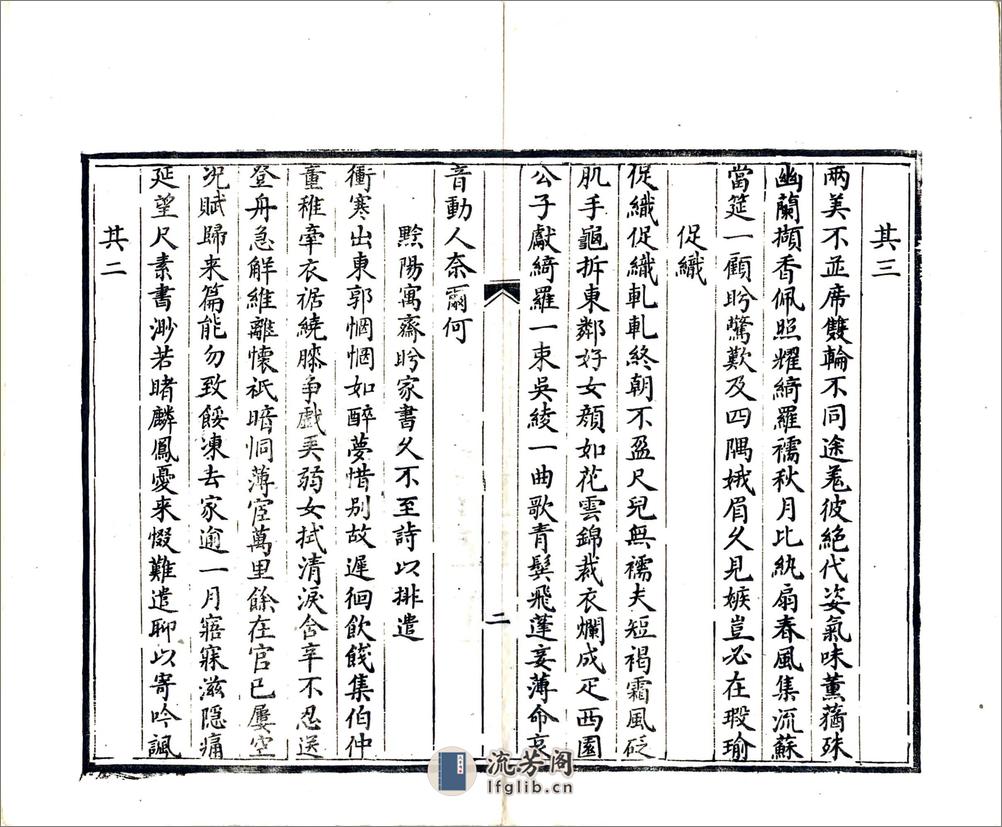 其三
兩美不並席雙輪不同途羌彼絕代姿氣味薰蕕殊
幽蘭擷香佩照耀綺羅襦秋月比紈扇春風集流蘇
當筵一顧盼驚歎及四隅娥眉久見嫉豈必在瑕瑜
促織
促織促織軋軋終朝不盈尺兒無襦夫短褐霜風砭
肌手龜拆東鄰好女顏如花雲錦裁衣爛成疋西園
公子獻綺羅一束吳綾一曲歌青鬢飛蓬妾薄命哀
二
音動人奈爾何
黔陽寓齋盼家書久不至詩以排遣
衝寒出東郭惘惘如醉夢惜别故遲徊飲餞集伯仲
童稚牽衣裾繞膝爭戲弄弱女拭清淚含辛不忍送
登舟急解維離懷祇暗恫薄宦萬里餘在官已屢空
况賦歸来篇能勿致餒凍去家逾一月寤寐滋隱痛
延望尺素書渺若睹麟鳳憂来惙難遣聊以寄吟諷
其二
流芳阁
lfglib.cn